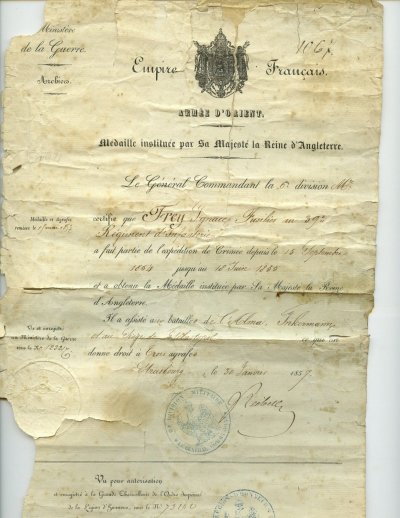 Ministère
de la Guerre.
Archives.
Empire Français.
ARMÉE D'ORIENT.
Médaille instituée par Sa Majesté la Reine d'Angleterre.
Le Général Commandant la 6e division Mre
certifie que Frey Ignace Fusilier au 39e
Régiment d'infanterie
a fait partie de l'expédition de Crimée depuis le 15 Septembre
1854 jusqu'au 10 Juin 1855
et a obtenu la Médaille instituée par Sa Majesté la Reine
d'Angleterre.
Il a assisté aux batailles de l'Alma, Inkermann
et au siège de Sébastopol ce qui lui
donne droit à trois agrafes
Strasbourg le 30 Janvier 1857
Médaille et agrafes
Vu et enregistré
au Ministère de la Guerre
sous le No
Vu pour autorisation
et enregistré à la Grande Chancellerie de l'Ordre Impérial
de la Légion d'Honneur, sous le No